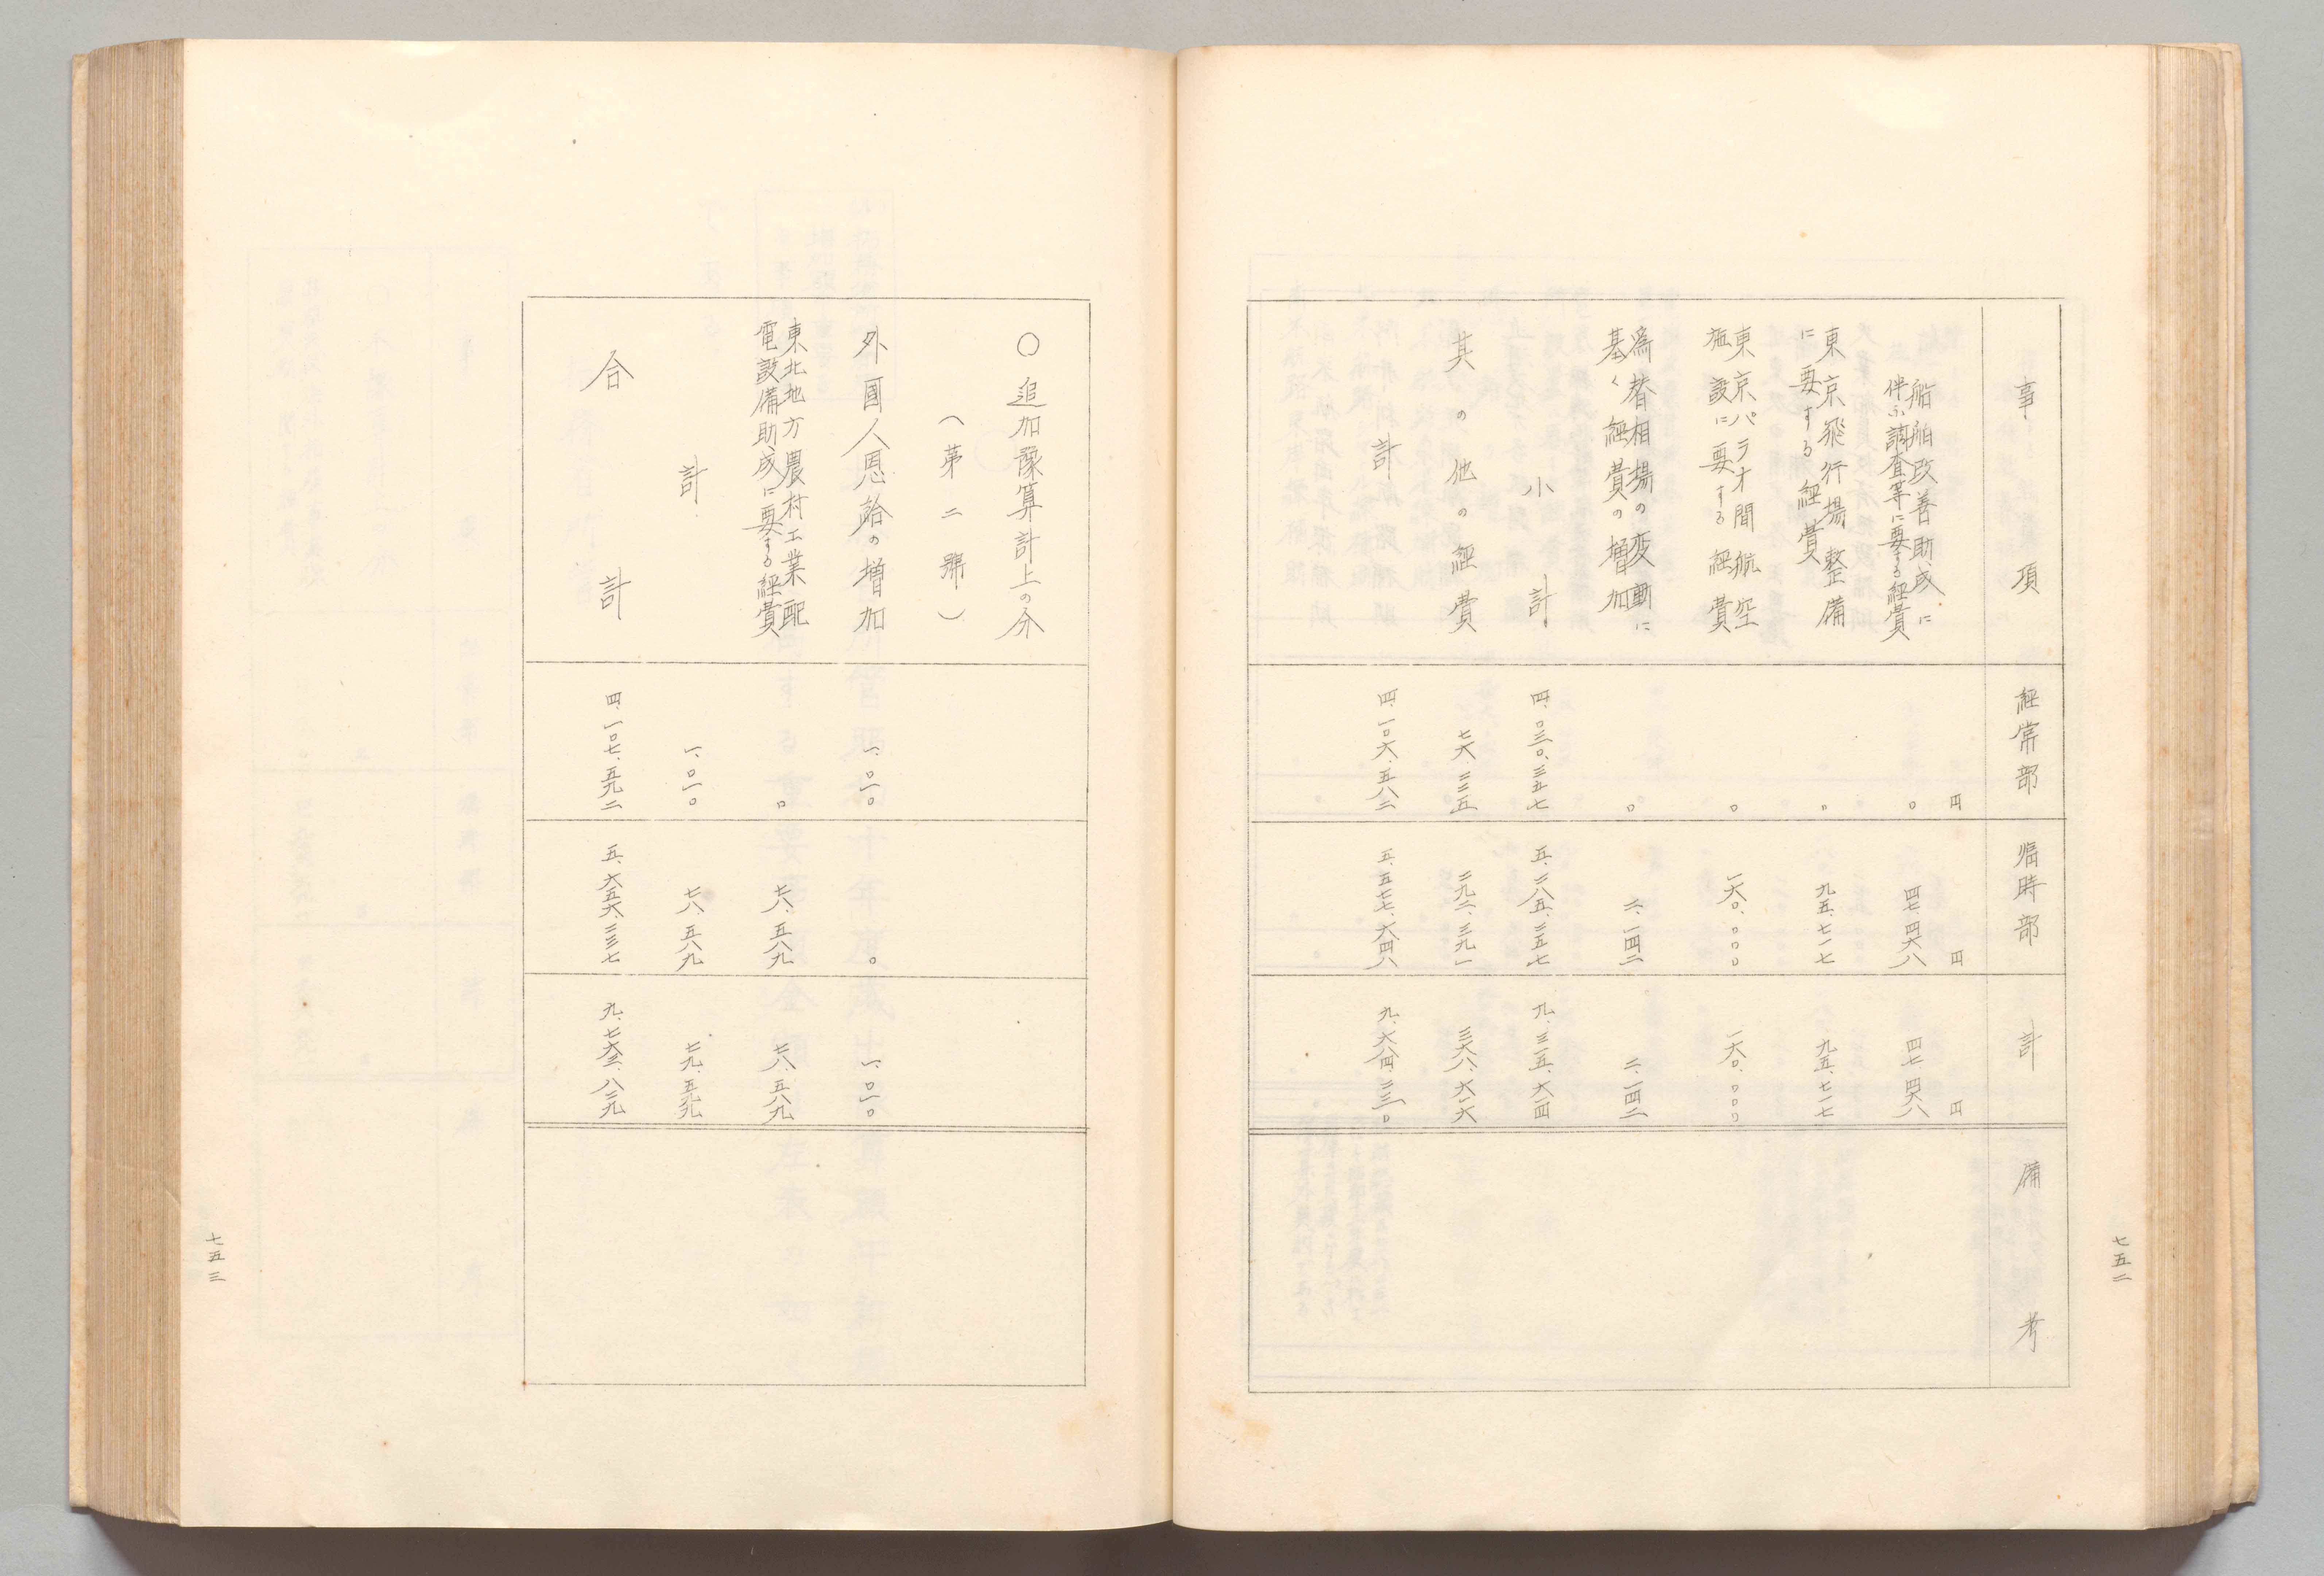 七五二
事項 経常部 臨時部 計 備考
円 円 円
船舶改善助成に
伴ふ調査等に要する経費 〇 四七、四六八 四七、四六八
東京飛行場整備
に要する経費 〇 九五、七一七 九五、七一七
東京パラオ間航空
施設に要する経費 〇 一六〇、〇〇〇 一六〇、〇〇〇
爲替相場の変動に
基く経費の増加 〇 二、一四二 二、一四二
小計 四、〇三〇、三五七 五、二八五、二五七 九、三一五、六一四
其の他の経費 七六、二二五 二九二、三九一 三六八、六一六
計 四、一〇六、五八二 五、五七七、六四八 九、六八四、二三〇
〇追加豫算計上の分
(第二號)
外國人恩給の増加 一、〇一〇 〇 一、〇一〇
東北地方農村工業配
電設備助成に要する経費 〇 七八、五八九 七八、五八九
計 一、〇一〇 七八、五八九 七九、五九九
合計 四、一〇七、五九二 五、六五六、二三七 九、七六三、八二九
七五三